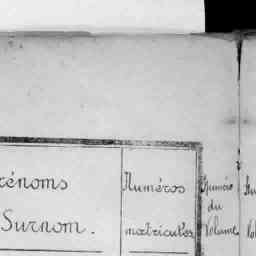 rénoms
Surnom.
Numéros
matricules
Numéro
du
Volume